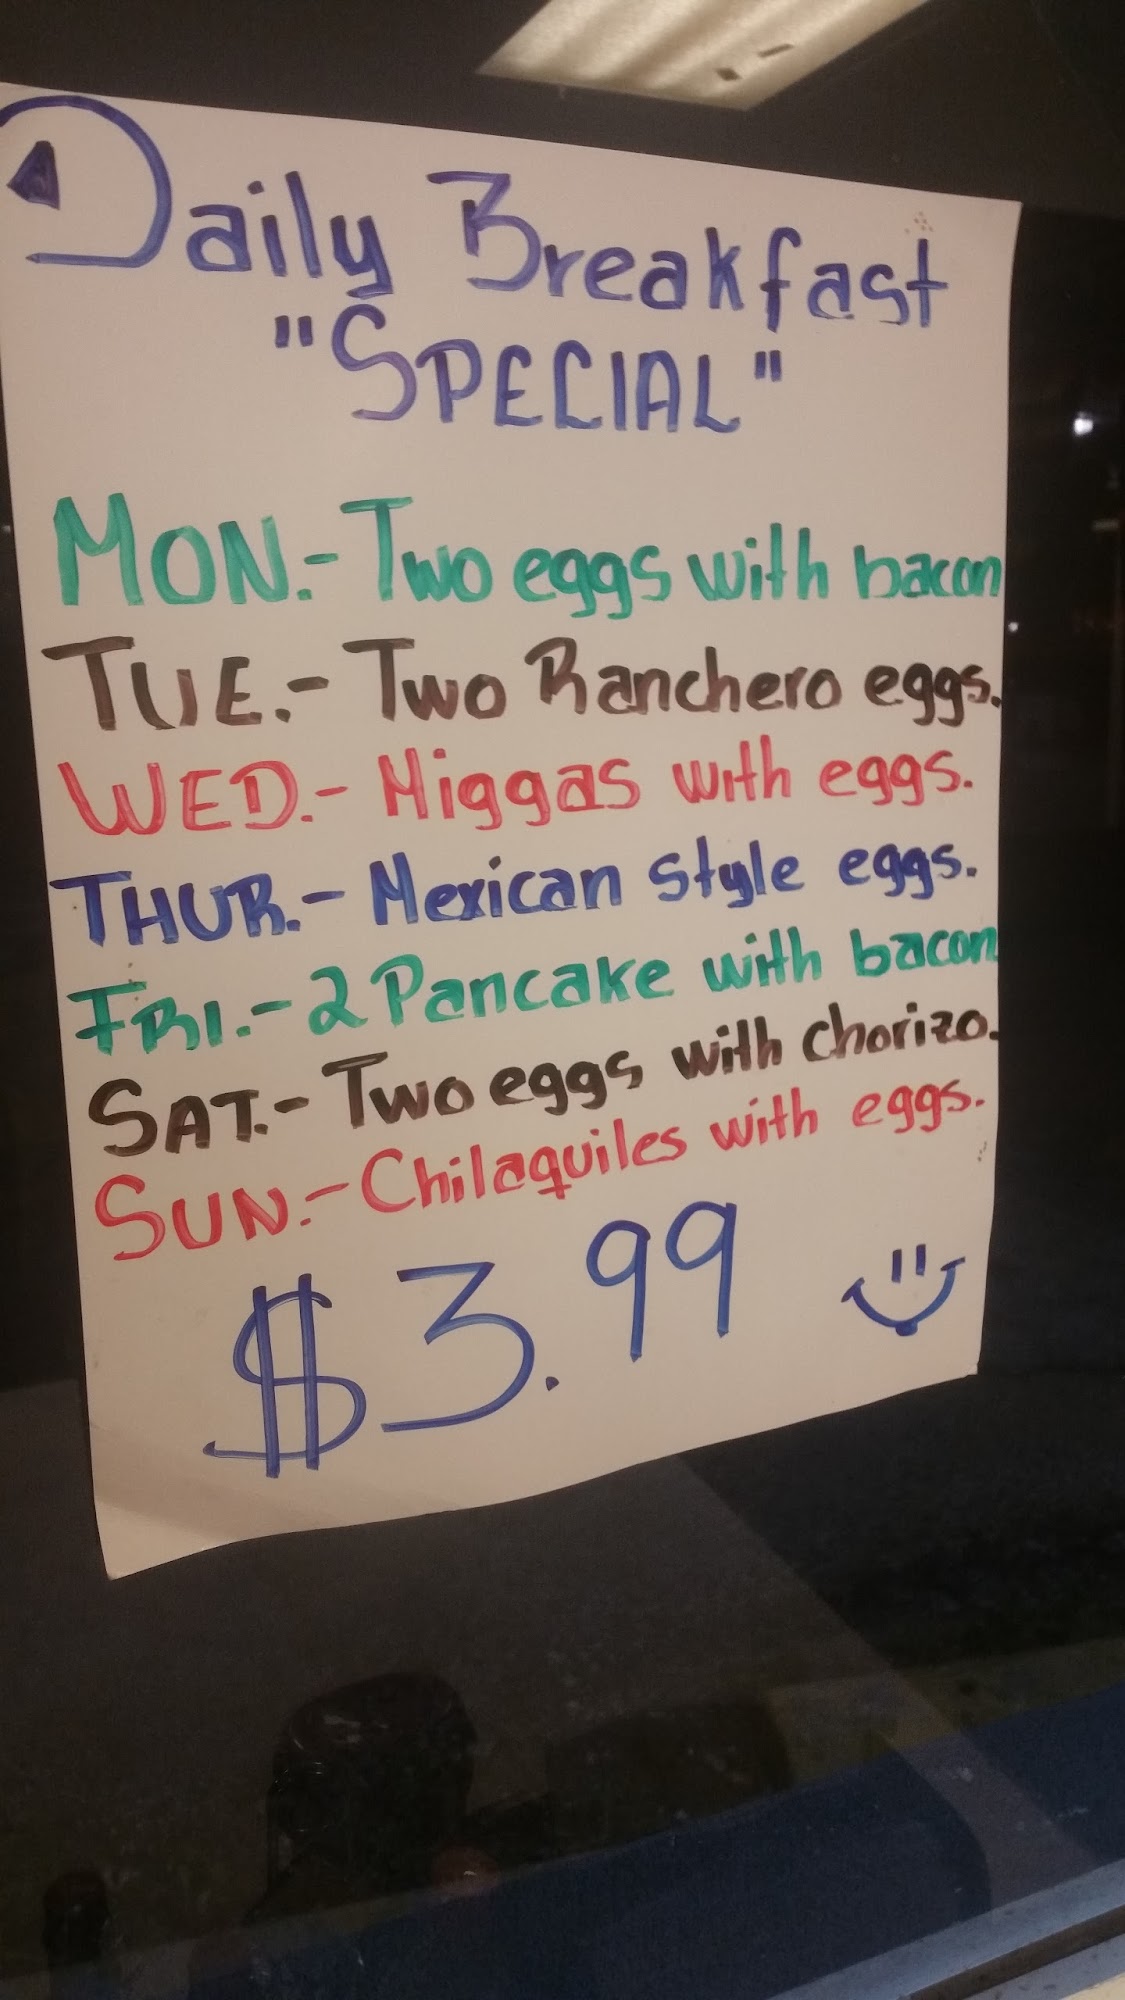 Daily Breakfast
"SPECIAL"
MON.- Two eggs with bacon
TUE.- Two Ranchero eggs.
WED.- Miggas with eggs.
THUR.- Mexican style eggs.
FRI.- 2 Pancake with bacon
SAT.- Two eggs with chorizo.
SUN.- Chilaquiles with eggs.
$3.99